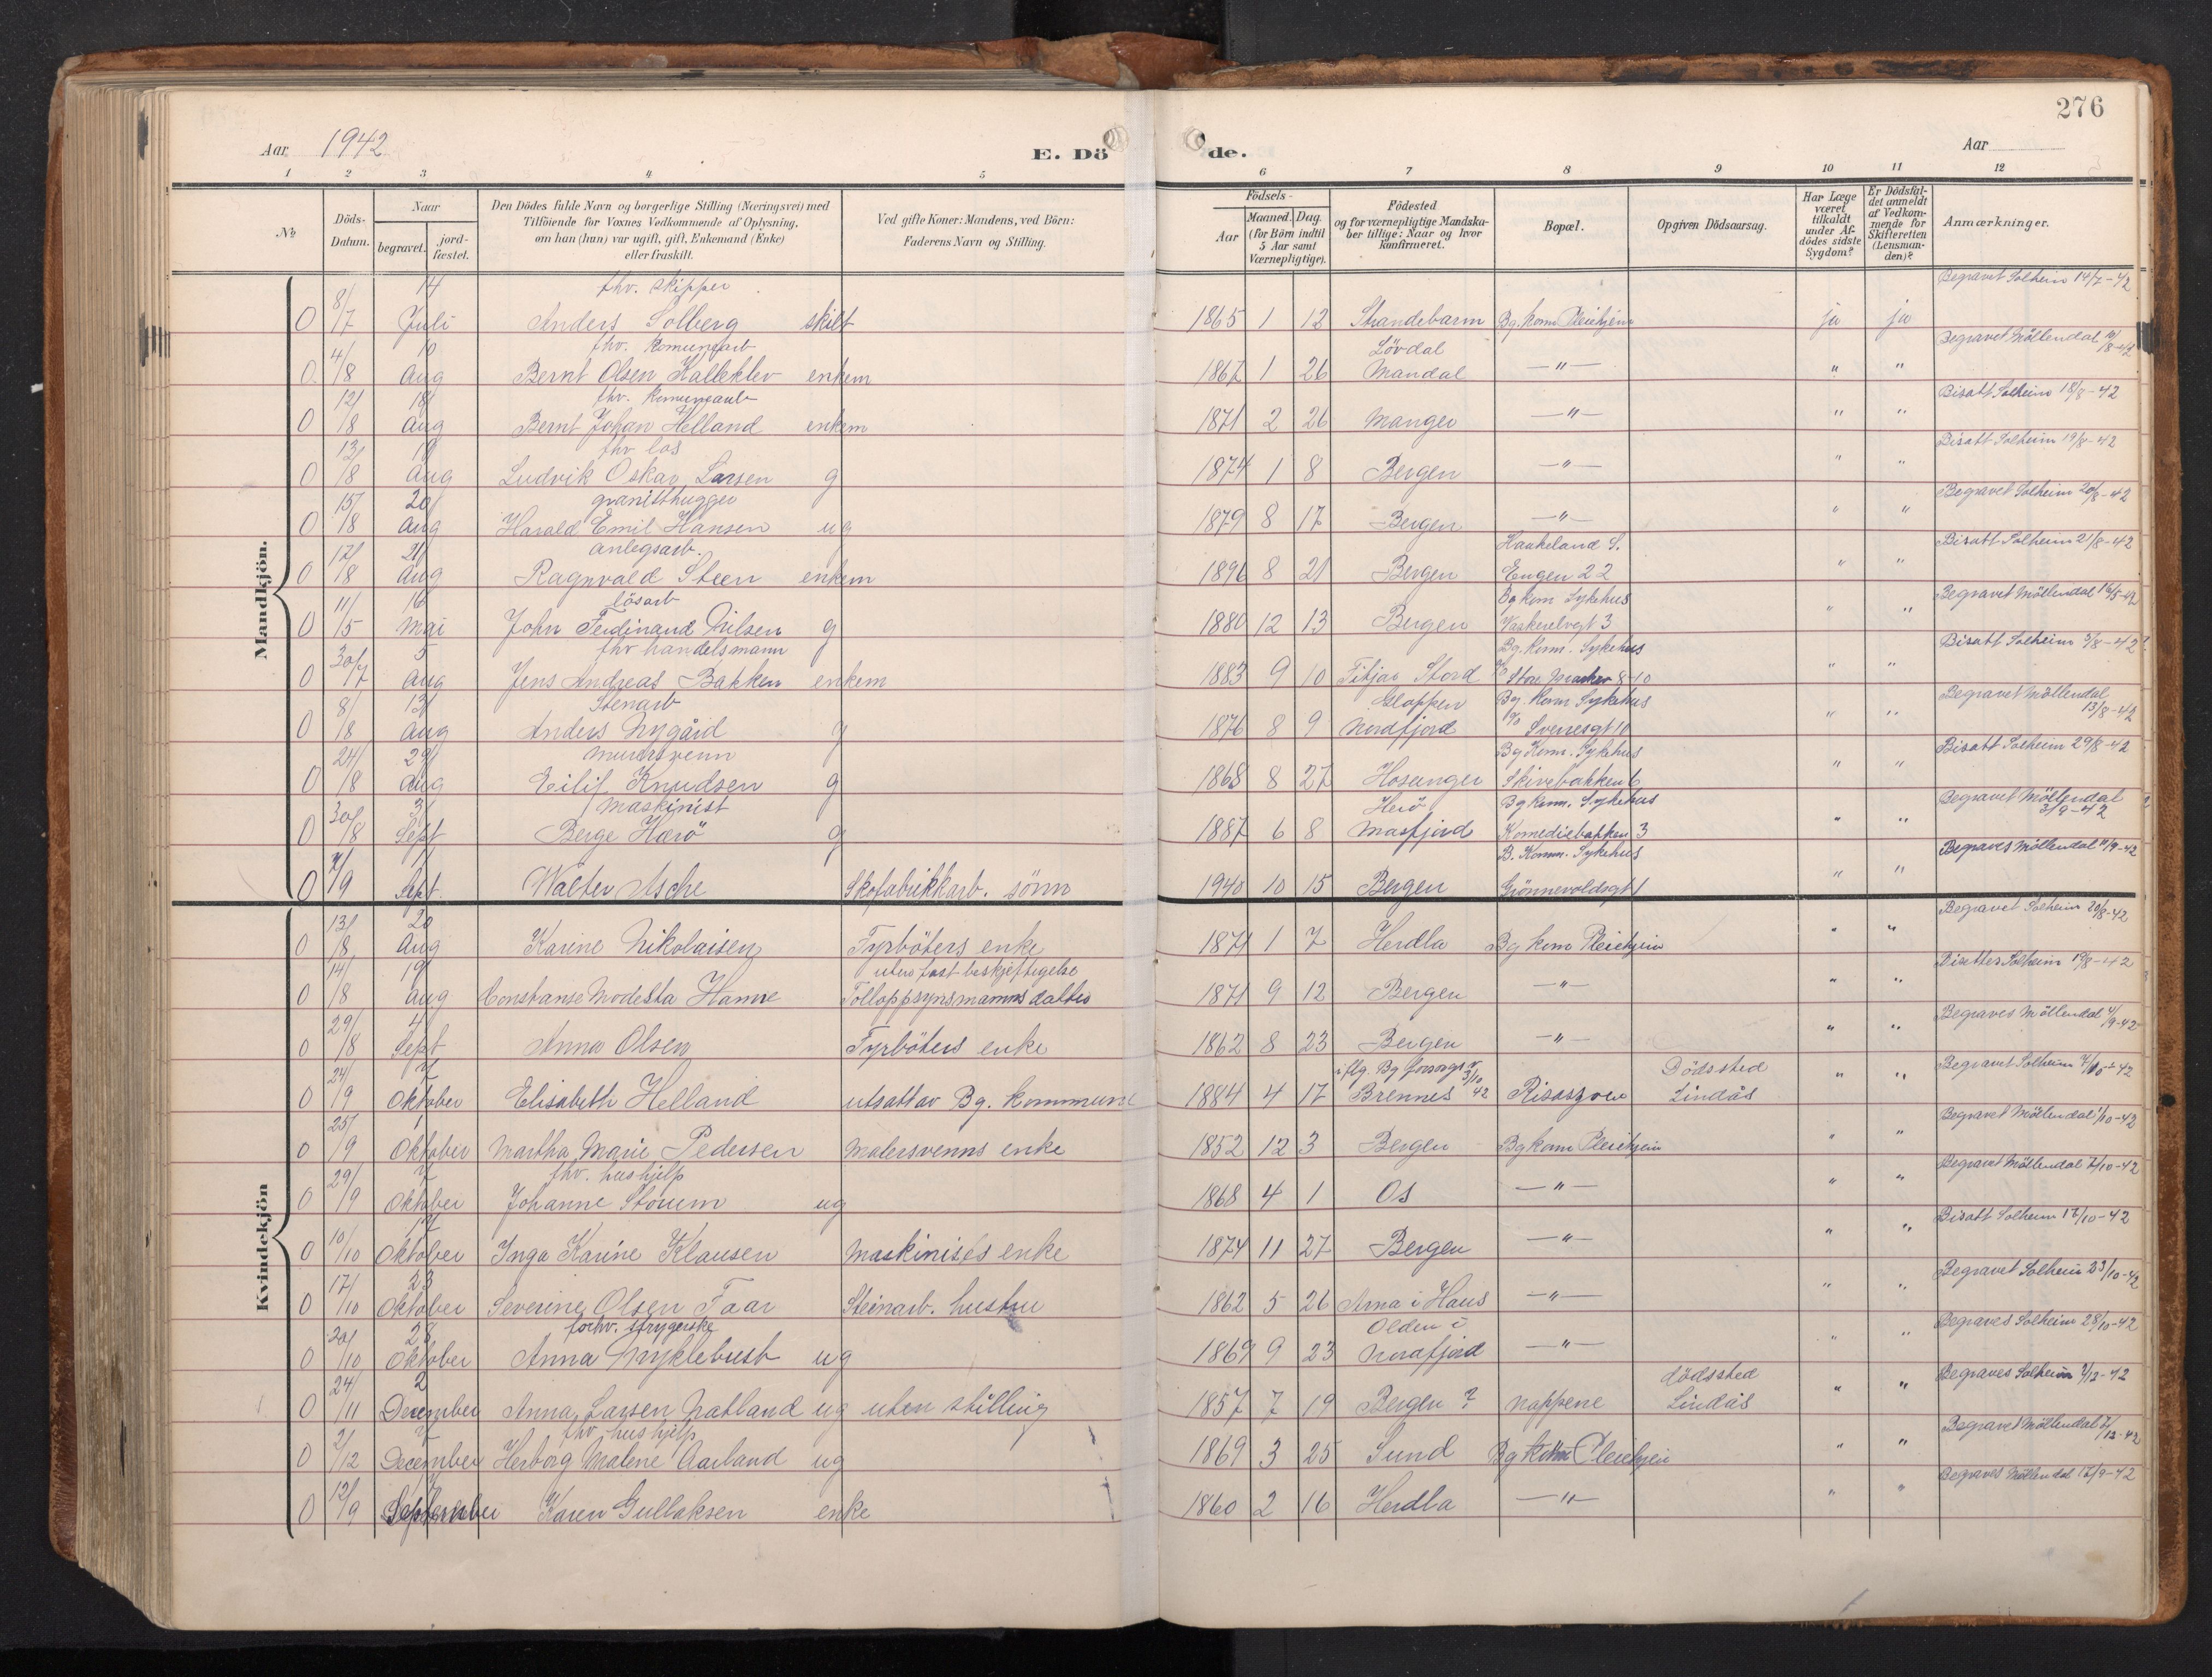 276
Aar 1942
E. Dö
de.
Aar
1 2 3 4 5 6 7 8 9 10 11 12
No
Döds-Datum.
Naar
begravet.
jord-fæstet.
Den Dödes fulde Navn og borgerlige Stilling (Næringsvei) med
Tilföiende for Voxnes Vedkommende af Oplysning,
om han (hun) var ugift, gift, Enkemand (Enke)
eller fraskilt.
Ved gifte Koner: Mandens, ved Börn:
Faderens Navn og Stilling.
Födsels-
Aar
Maaned. Dag.
(for Börn indtil
5 Aar samt
Værnepligtige).
Födested
og for værnepligtige Mandska-
ber tillige: Naar og hvor
konfirmeret.
Bopæl.
Opgiven Dödsaarsag.
Har Læge
været
tilkaldt
under Af-
dödes sidste
Sygdom?
Er Dödsfal-
det anmeldt
af Vedkom-
mende for
Skifteretten
(Lensman-
den)?
Anmærkninger.
Mandkjön.
14 fhv. skipper Begravet Solheim 14/7-42
0 8/7 Juli Anders Solberg skilt 1865 1 12 Strandebarm Bg. kom Pleiehjem ja ja
10 fhv. komunearb Lövdal Begravet Möllendal 10/8-42
0 4/8 Aug Bernt Olsen Kalleklev enkem 1867 1 26 Mandal —"— " "
18 fhv. komunearb Bisatt Solheim 18/8-42
0 12/8 Aug Bernt Johan Helland enkem 1871 2 26 Manger —"— " "
19 fhv los Bisatt Solheim 19/8-42
0 13/8 Aug Ludvik Oskar Larsen g 1874 1 8 Bergen —"— " "
20 granitthugger Begravet Solheim 20/8-42
0 15/8 Aug Harald Emil Hansen ug 1879 8 17 Bergen —"— " "
21 anlegsarb. Haukeland S. Bisatt Solheim 21/8-42
0 17/8 Aug Ragnvald Steen enkem 1896 8 21 Bergen Engen 22 " "
16 lösarb Bg kom Sykehus Begravet Möllendal 16/5-42
0 11/5 Mai John Ferdinand Nilsen g 1880 12 13 Bergen Vaskerelvgt 3 " "
5 fhv handelsmann Bg. kom. Sykehus Bisatt Solheim 5/8-42
0 30/7 Aug Jens Andreas Bakken enkem 1883 9 10 Fitjar Stord Store 8-10 " "
13 Stenarb Gloppen Bg. Kom Sykehus Begravet Möllendal 13/8-42
0 8/8 Aug Anders Nygård g 1876 8 9 Nordfjord Sverresgt 10 " "
29 murersvenn Bg Kom. Sykehus Bisatt Solheim 29/8-42
0 24/8 Aug Eilif Knudsen g 1868 8 27 Hosanger Skivebakken 6 " "
3 maskinist Herö Bg kom. Sykehus Begravet Möllendal 3/9-42
0 30/8 Sept Berge Hærö g 1887 6 8 Masfjord Komediebakken 3 " "
11 B. Komm. Sykehus Begraves Möllendal 11/9-42
0 7/9 Sept. Walter Asche Skofabrikkarb. sönn 1940 10 15 Bergen Grönnevoldsgt 1 " "
Kvindekjön
20 Begravet Solheim 20/8-42
0 13/8 Aug Karine Nikolaisen Fyrböters enke 1871 1 7 Herdla Bg kom Pleiehjem " "
19 uten fast beskjeftigelse Bisettes Solheim 19/8-42
0 14/8 Aug Constanse Modesta Hamre Tolloppsynsmanns datter 1871 9 12 Bergen —"— " "
4 Begraves Möllendal 4/9-42
0 29/8 Sept Anna Olsen Fyrböters enke 1862 8 23 Bergen —"— " "
7 iflg. Bg forsorgs 3/10 42 Dödssted Begravet Solheim 7/10-42
0 24/9 Oktober Elisabeth Helland utsatt av Bg. kommune 1884 4 17 Brennes Risaszoen Lindås " "
1 Begravet Möllendal 1/10-42
0 25/9 Oktober Martha Marie Pedersen Malersvenns enke 1852 12 3 Bergen Bg kom Pleiehjem " "
7 fhv. hushjelp Begravet Möllendal 7/10-42
0 29/9 Oktober Johanne Storum ug 1868 4 1 Os —"— " "
17 Bisatt Solheim 17/10-42
0 10/10 Oktober Inga Karine Klausen Maskinists enke 1874 11 27 Bergen —"— " "
23 Begravet Solheim 23/10-42
0 17/10 Oktober Severine Olsen Faar Steinarb. hustru 1862 5 26 Arna i Haus —"— " "
28 forhv. strygerske Olden i Begraves Solheim 28/10-42
0 20/10 Oktober Anna Myklebust ug 1869 9 23 Nordfjord —"— " "
2 dödssted Begraves Solheim 2/12-42
0 24/11 December Anna Larsen Natland ug uten stilling 1857 7 19 Bergen ? Noppene Lindås " "
7 fhv hushjelp Begravet Möllendal 7/12-42
0 2/12 December Herborg Malene Aarland ug 1869 3 25 Sund Bg kom Pleiehjem " "
Begraves Möllendal 17/9-42
0 12/9 September Karen Gullaksen enke 1860 2 16 Herdla —"— " "